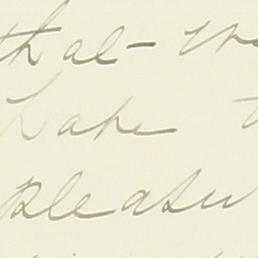 that - we
Lake t
pleasu